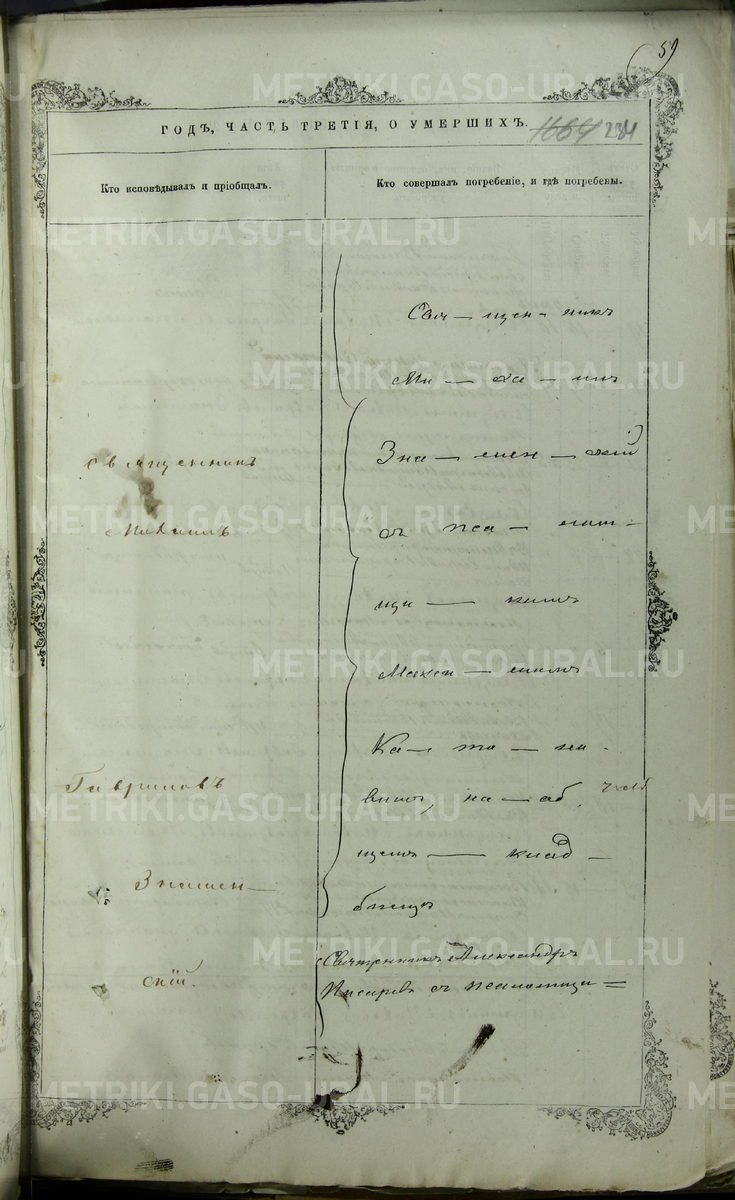 59
ГОДЪ, ЧАСТЬ ТРЕТІЯ, О УМЕРШИХЪ.
1664 234
Кто исповѣдывалъ и пріобщалъ.
Кто совершалъ погребеніе, и гдѣ погребены.
METRIKI.GASO-URAL.RU
Священникъ
Михаилъ
Гавриловъ
Знамен—
скій.
Свя — щен — никъ
Ми — ха — илъ
Зна — мен — скій
съ пса — лом —
щи — комъ
Макси — момъ
Ка —
вымъ, на — об
щемъ — клад —
бищѣ
Священникъ Александръ
Писаревъ съ псаломщи =